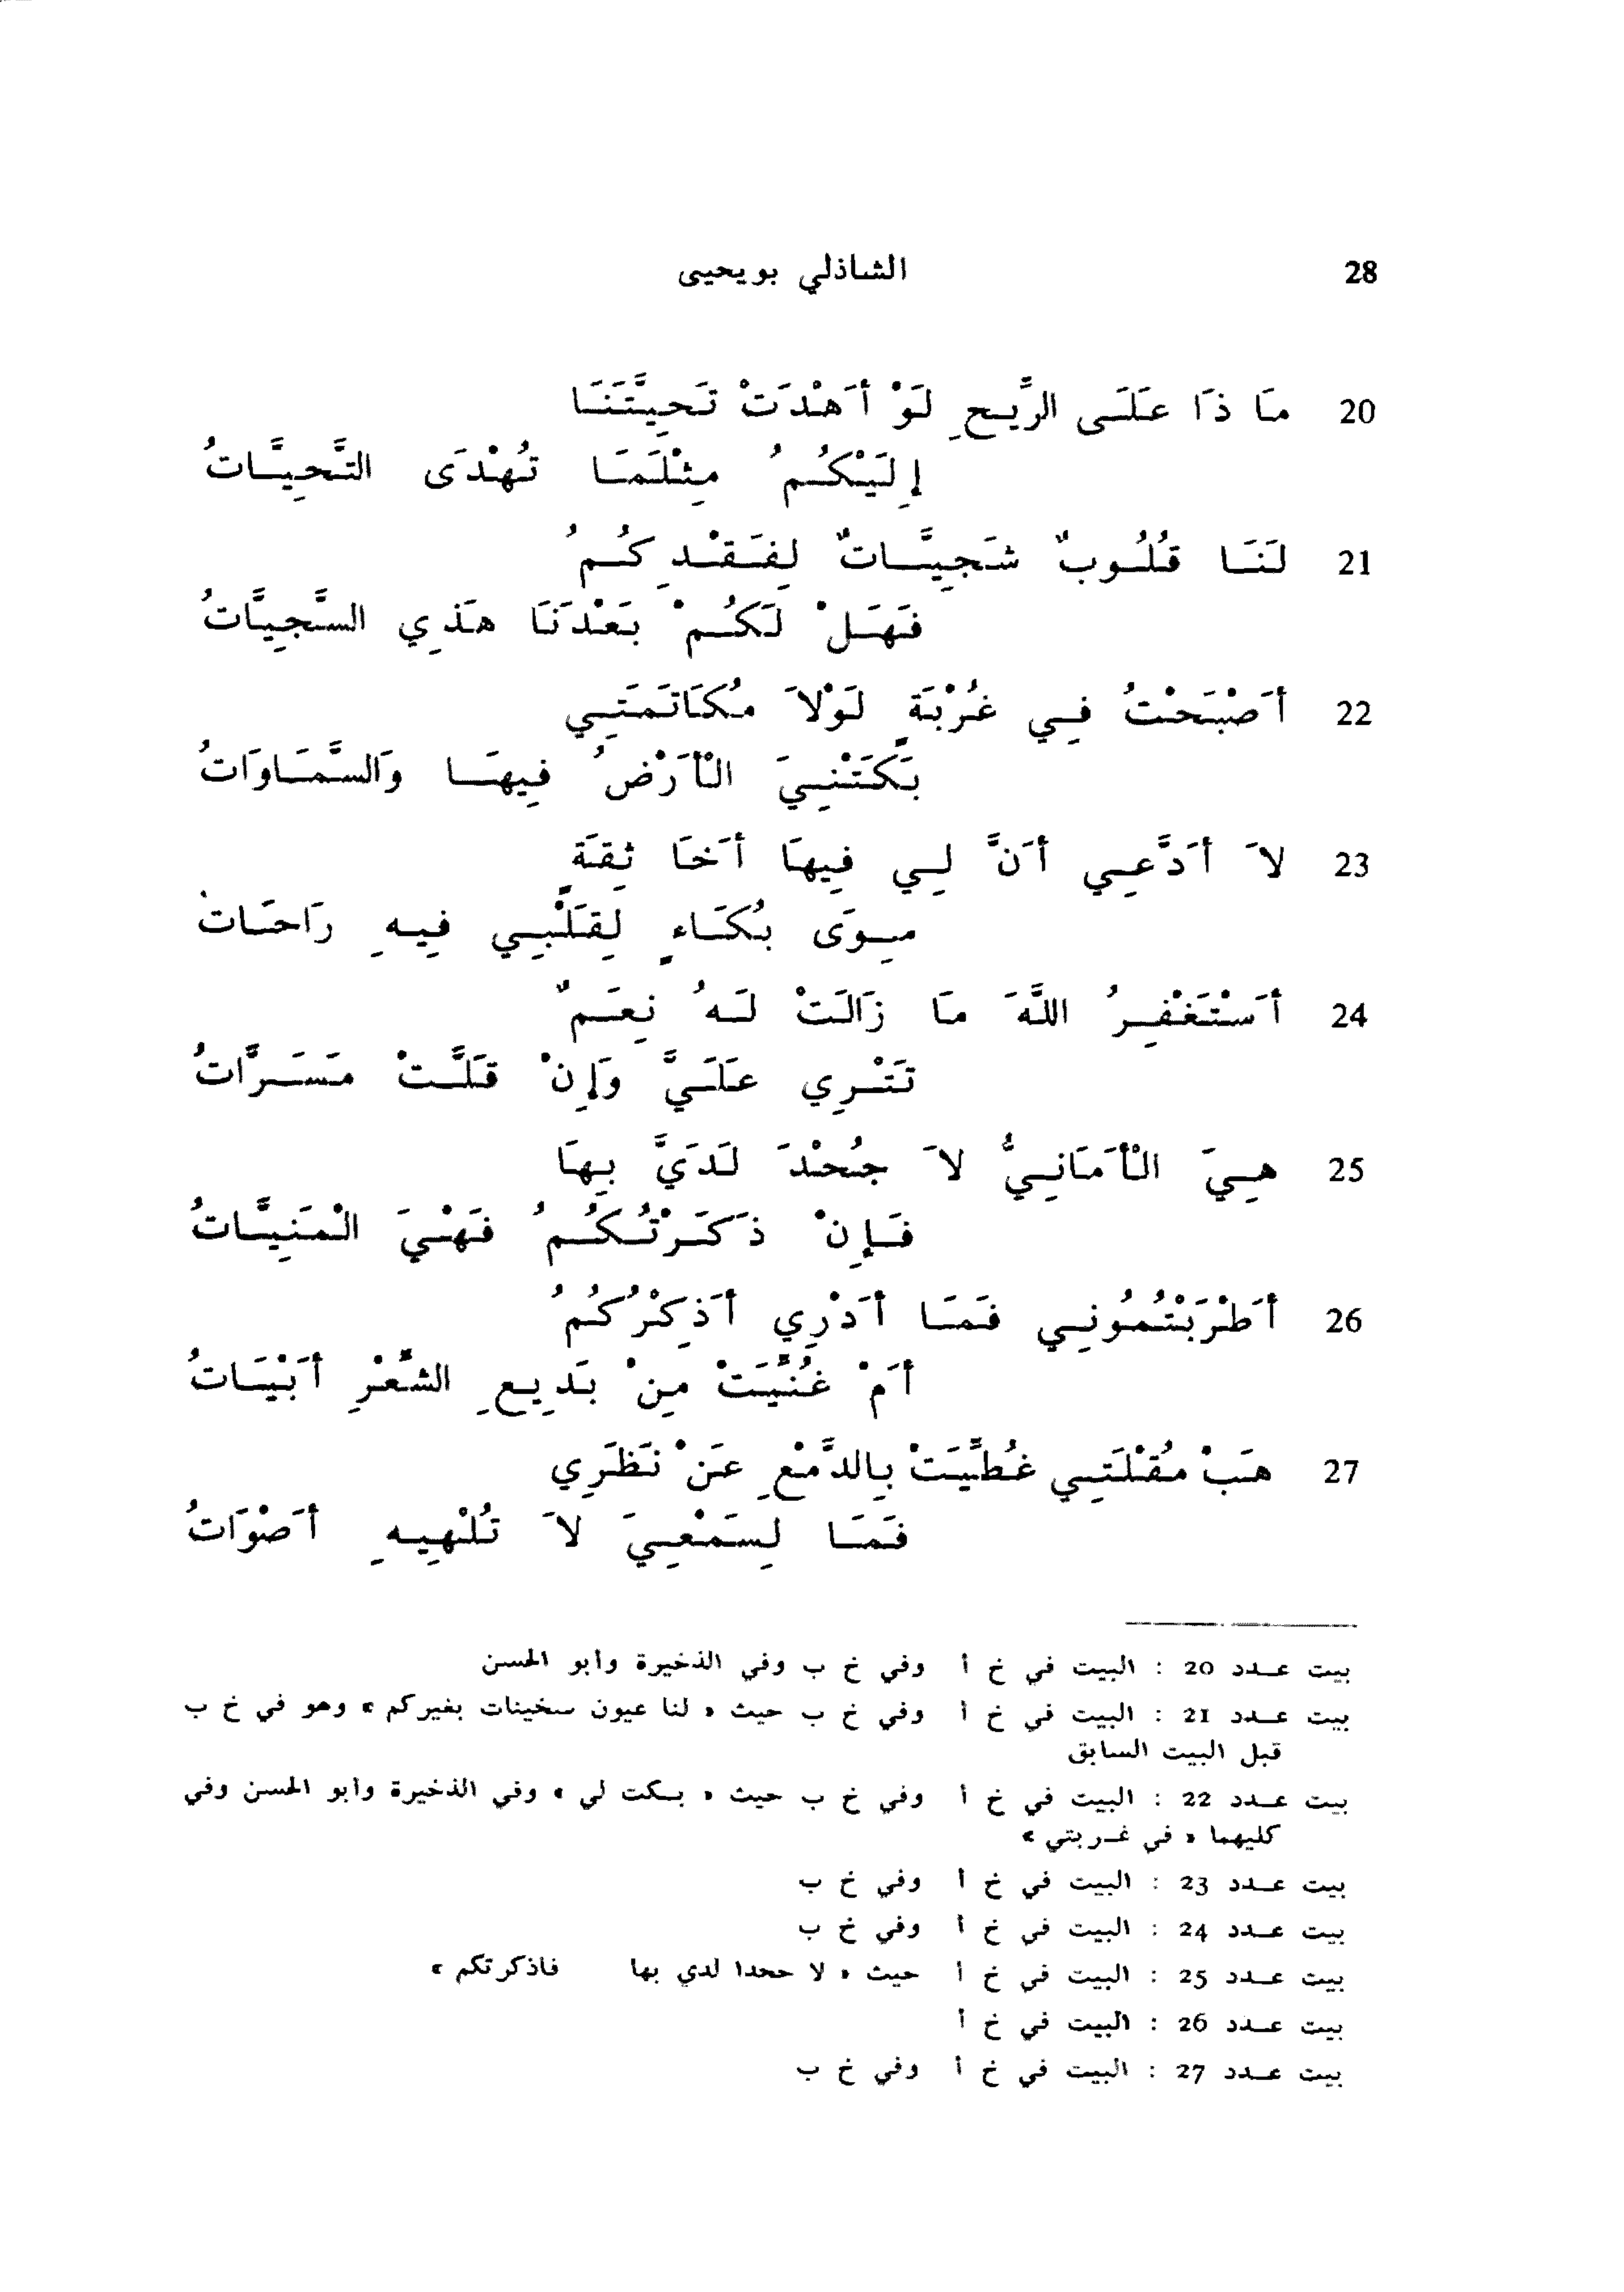 28 الشاذلي بويحيى
20 مَا ذَا عَلَى الرِّيحِ لَوْ أَهْدَتْ تَحِيَّتَنَا
إِلَيْكُمُ مِثْلَمَا تُهْدَى التَّحِيَّاتُ
21 لَنَا قُلُوبٌ شَجِيَّاتٌ لِفَقْدِكُمُ
فَهَلْ لَكُمْ بَعْدَنَا هَذِي السَّجِيَّاتُ
22 أَصْبَحْتُ فِي غُرْبَةٍ لَوْلاَ مُكَاتَمَتِي
بَكَتْنِيَ الْأَرْضُ فِيهَا وَالسَّمَاوَاتُ
23 لاَ أَدَّعِي أَنَّ لِي فِيهَا أَخَا ثِقَةٍ
سِوَى بُكَاءٍ لِقَلْبِي فِيهِ رَاحَاتُ
24 أَسْتَغْفِرُ اللَّهَ مَا زَالَتْ لَهُ نِعَمٌ
تَتْرِي عَلَيَّ وَإِنْ قَلَّتْ مَسَرَّاتُ
25 هِيَ الْأَمَانِيُّ لاَ جُحْدَ لَدَيَّ بِهَا
فَإِنْ ذَكَرْتُكُمُ فَهْيَ الْمَنِيَّاتُ
26 أَطْرَبْتُمُونِي فَمَا أَدْرِي أَذِكْرُكُمُ
أَمْ غُنِّيَتْ مِنْ بَدِيعِ الشِّعْرِ أَبْيَاتُ
27 هَبْ مُقْلَتِي غُطِّيَتْ بِالدَّمْعِ عَنْ نَظَرِي
فَمَا لِسَمْعِيَ لاَ تُلْهِيهِ أَصْوَاتُ
بيت عدد 20 : البيت في خ أ وفي خ ب وفي الذخيرة وأبو الحسن
بيت عدد 21 : البيت في خ أ وفي خ ب حيث « لنا عيون سخينات بغيركم » وهو في خ ب
قبل البيت السابق
بيت عدد 22 : البيت في خ أ وفي خ ب حيث « بكت لي » وفي الذخيرة وأبو الحسن وفي
كليهما « في غربتي »
بيت عدد 23 : البيت في خ أ وفي خ ب
بيت عدد 24 : البيت في خ أ وفي خ ب
بيت عدد 25 : البيت في خ أ حيث « لا جحدا لدي بها فاذكرتكم »
بيت عدد 26 : البيت في خ أ
بيت عدد 27 : البيت في خ أ وفي خ ب